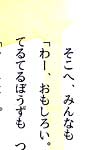 そこへ、みんなも
「わー、おもしろい。
てるてるぼうずも つ